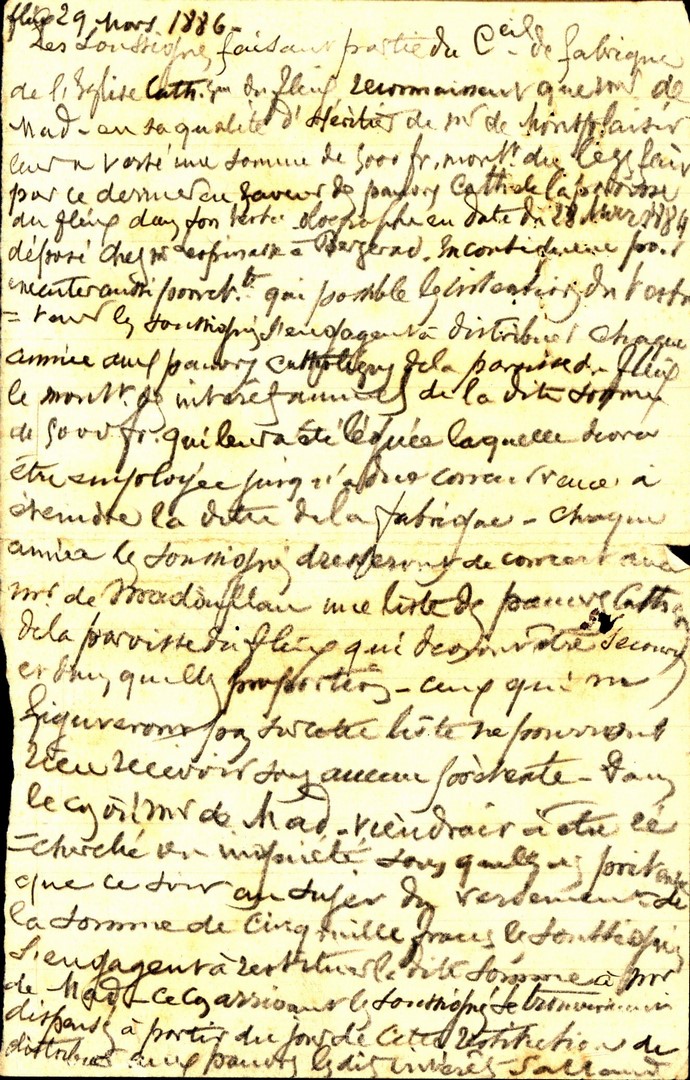 fleix 29 Mars 1886 -
Les Soussignés faisant partie du Ceil de fabrique
de l'Eglise Cath. du fleix reconnaissent que mr de
Mad - en sa qualité d'héritier de mr de Montplaisir
leur a versé une somme de 5000 fr. mont. du legs fait
par ce dernier en faveur des pauvres Cath. de la paroisse
du fleix dans son test. olographe en date du 28 Mars 1884
déposé chez mr espinasse à Bergerac. En conséquence pour
exécuter aussi ponctt. que possible les intentions du testa
= teur les soussignés s'engagent à distribuer chaque
année aux pauvres catholiques de la paroisse du fleix
le montt. des intérêts annuels de la dite somme
de 5000 fr. qui leur a été léguée laquelle devra
être employée jusqu'à due concurrence à
éteindre la dette de la fabrique - Chaque
année les soussignés dresseront de concert avec
mr. de Madaillan une liste des pauvres Cath.
de la paroisse du fleix qui devront être secourus
et dans quelles proportions - ceux qui ne
figureront pas sur cette liste ne pourront
rien recevoir sous aucun prétexte - Dans
le cas où mr de Mad - viendrait à être re
= cherché ou inquiété sous quelque prétexte
que ce soit au sujet du versement de
la somme de Cinq mille francs les soussignés
s'engagent à restituer la dite somme à mr
de Mad - ce cas arrivant les soussignés se trouveraient
dispensés à partir du jour de cette restitution de
distribuer aux pauvres les dits intérêts